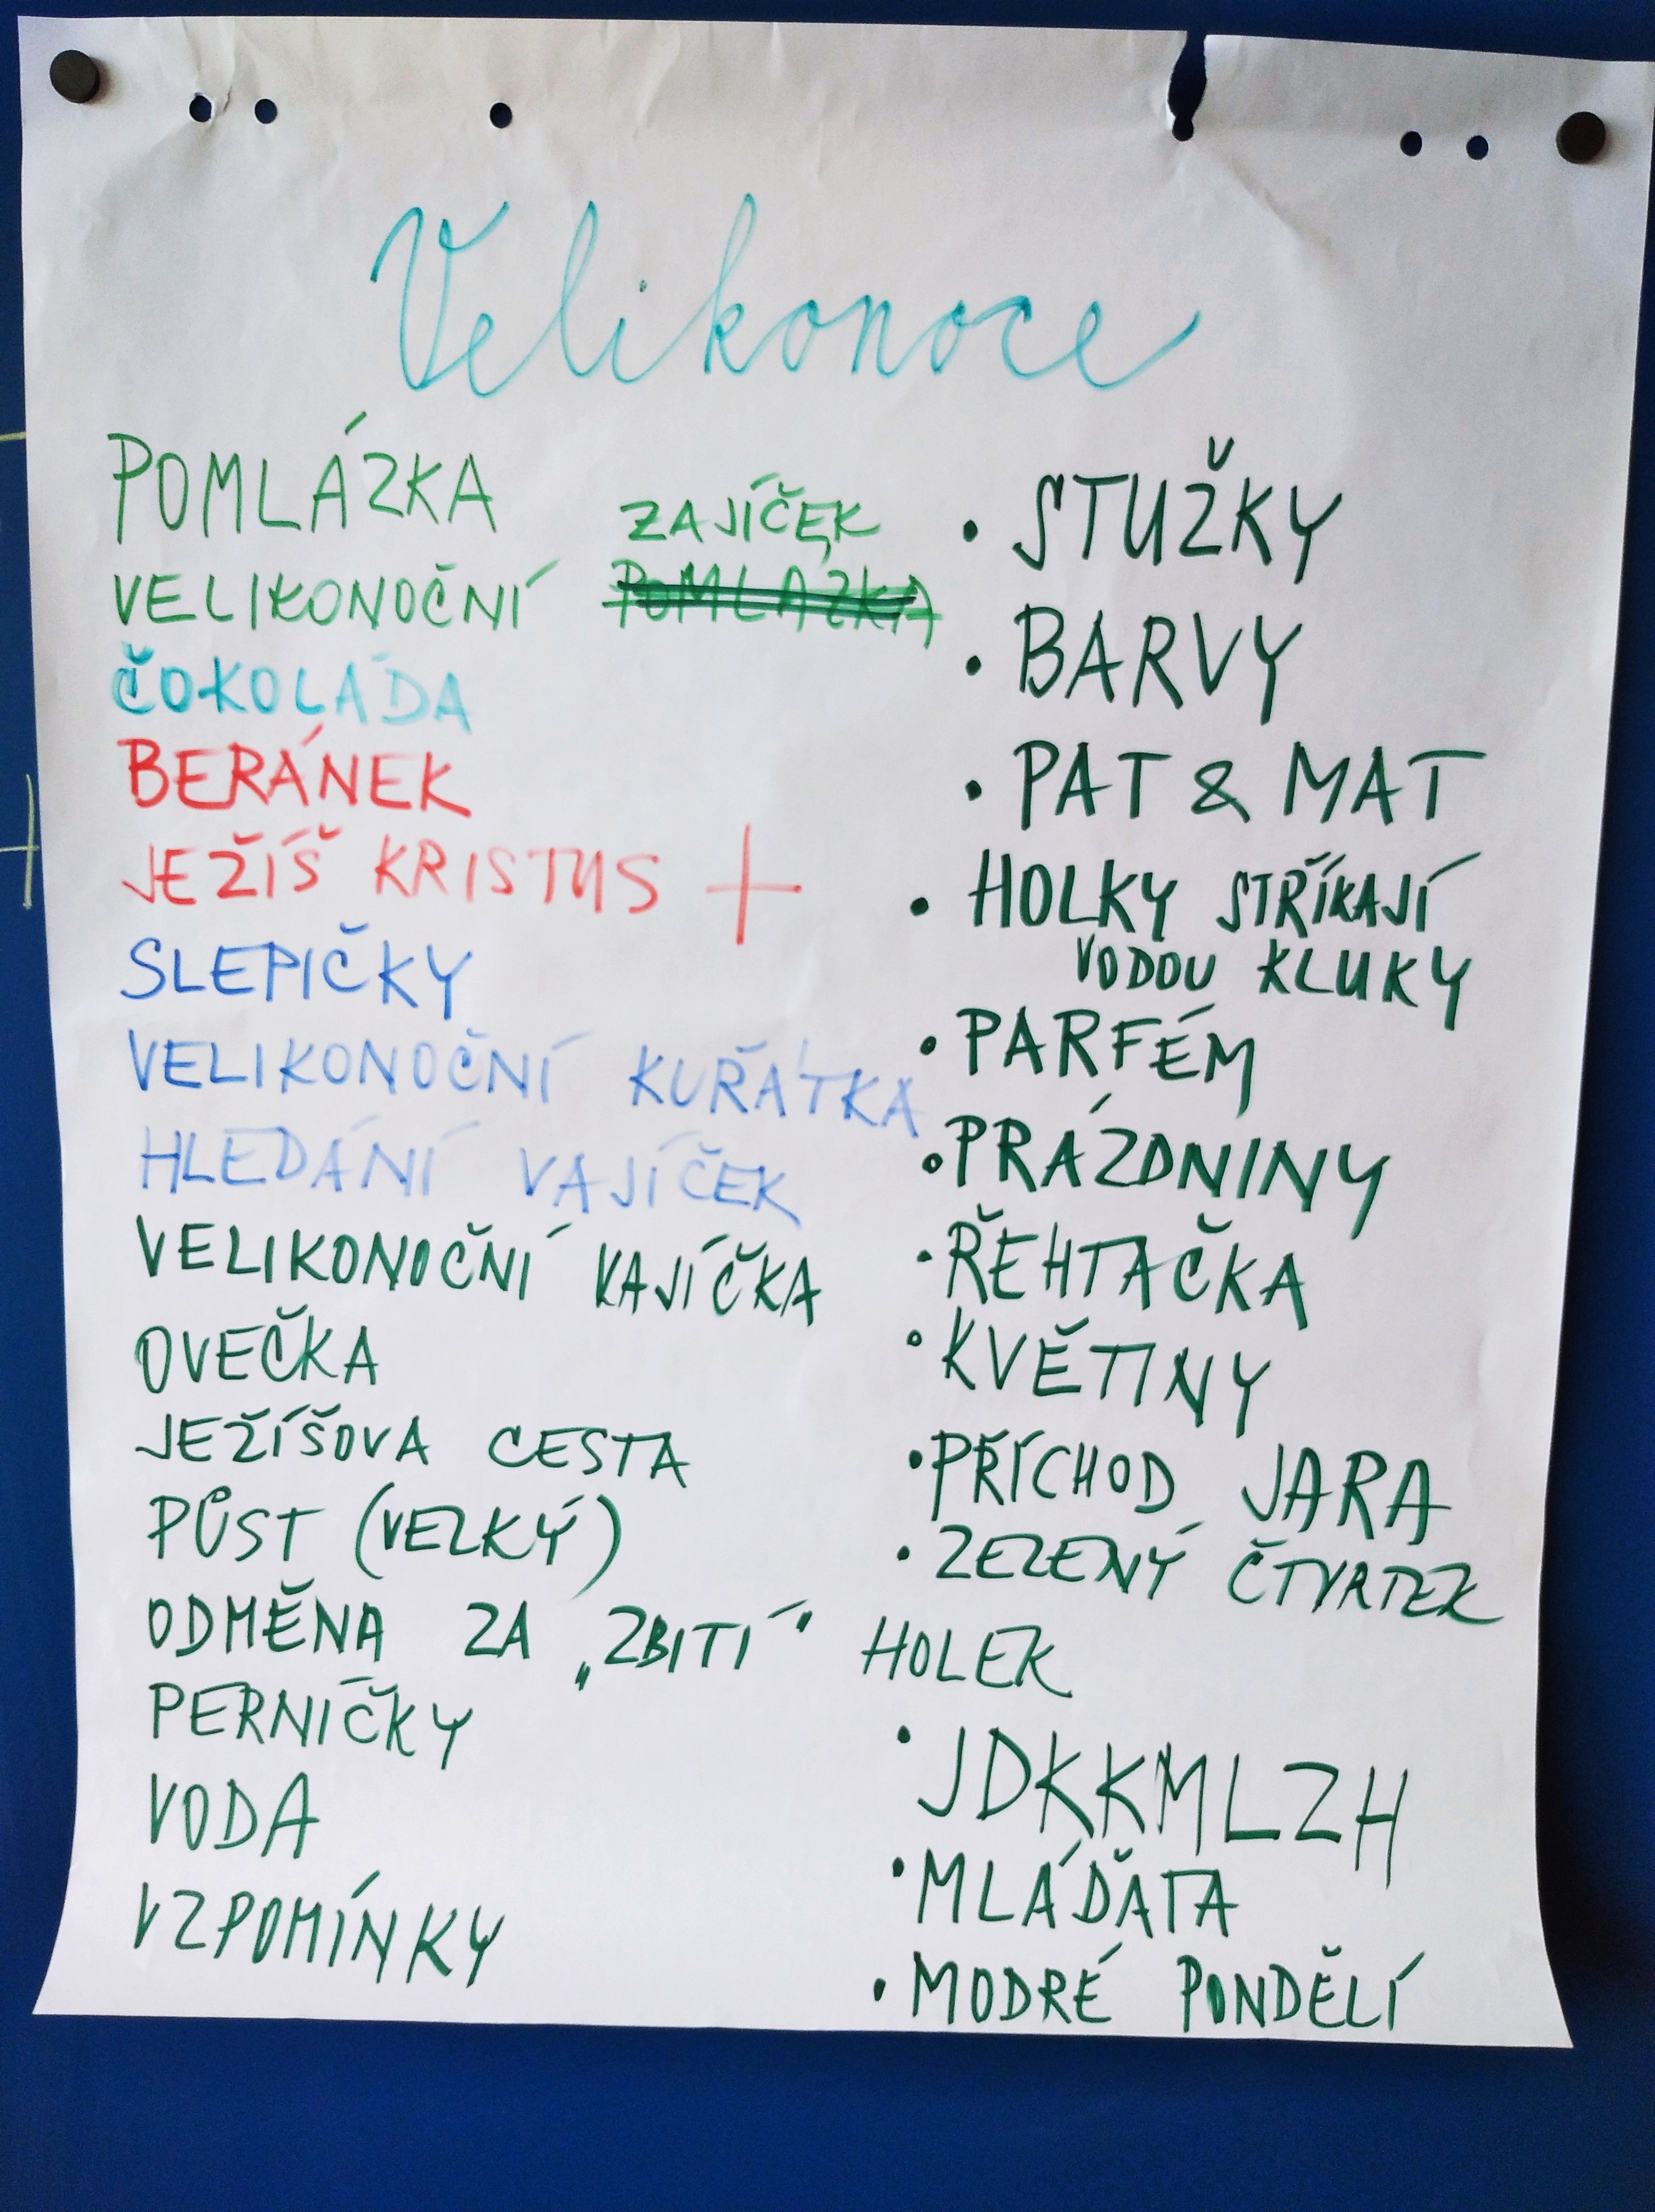 Velikonoce
POMLÁZKA
ZAJÍČEK
VELIKONOČNÍ POMLÁZKA
ČOKOLÁDA
BERÁNEK
JEŽÍŠ KRISTUS +
SLEPIČKY
VELIKONOČNÍ KUŘÁTKA
HLEDÁNÍ VAJÍČEK
VELIKONOČNÍ VAJÍČKA
OVEČKA
JEŽÍŠOVA CESTA
PŮST (VELKÝ)
ODMĚNA ZA „ZBITÍ“ HOLEK
PERNÍČKY
VODA
VZPOMÍNKY
• STUŽKY
• BARVY
• PAT & MAT
• HOLKY STŘÍKAJÍ
VODOU KLUKY
• PARFÉM
• PRÁZDNINY
• ŘEHTAČKA
• KVĚTINY
• PŘÍCHOD JARA
• ZELENÝ ČTVRTEK
• JDKKMLZH
• MLÁĎATA
• MODRÉ PONDĚLÍ